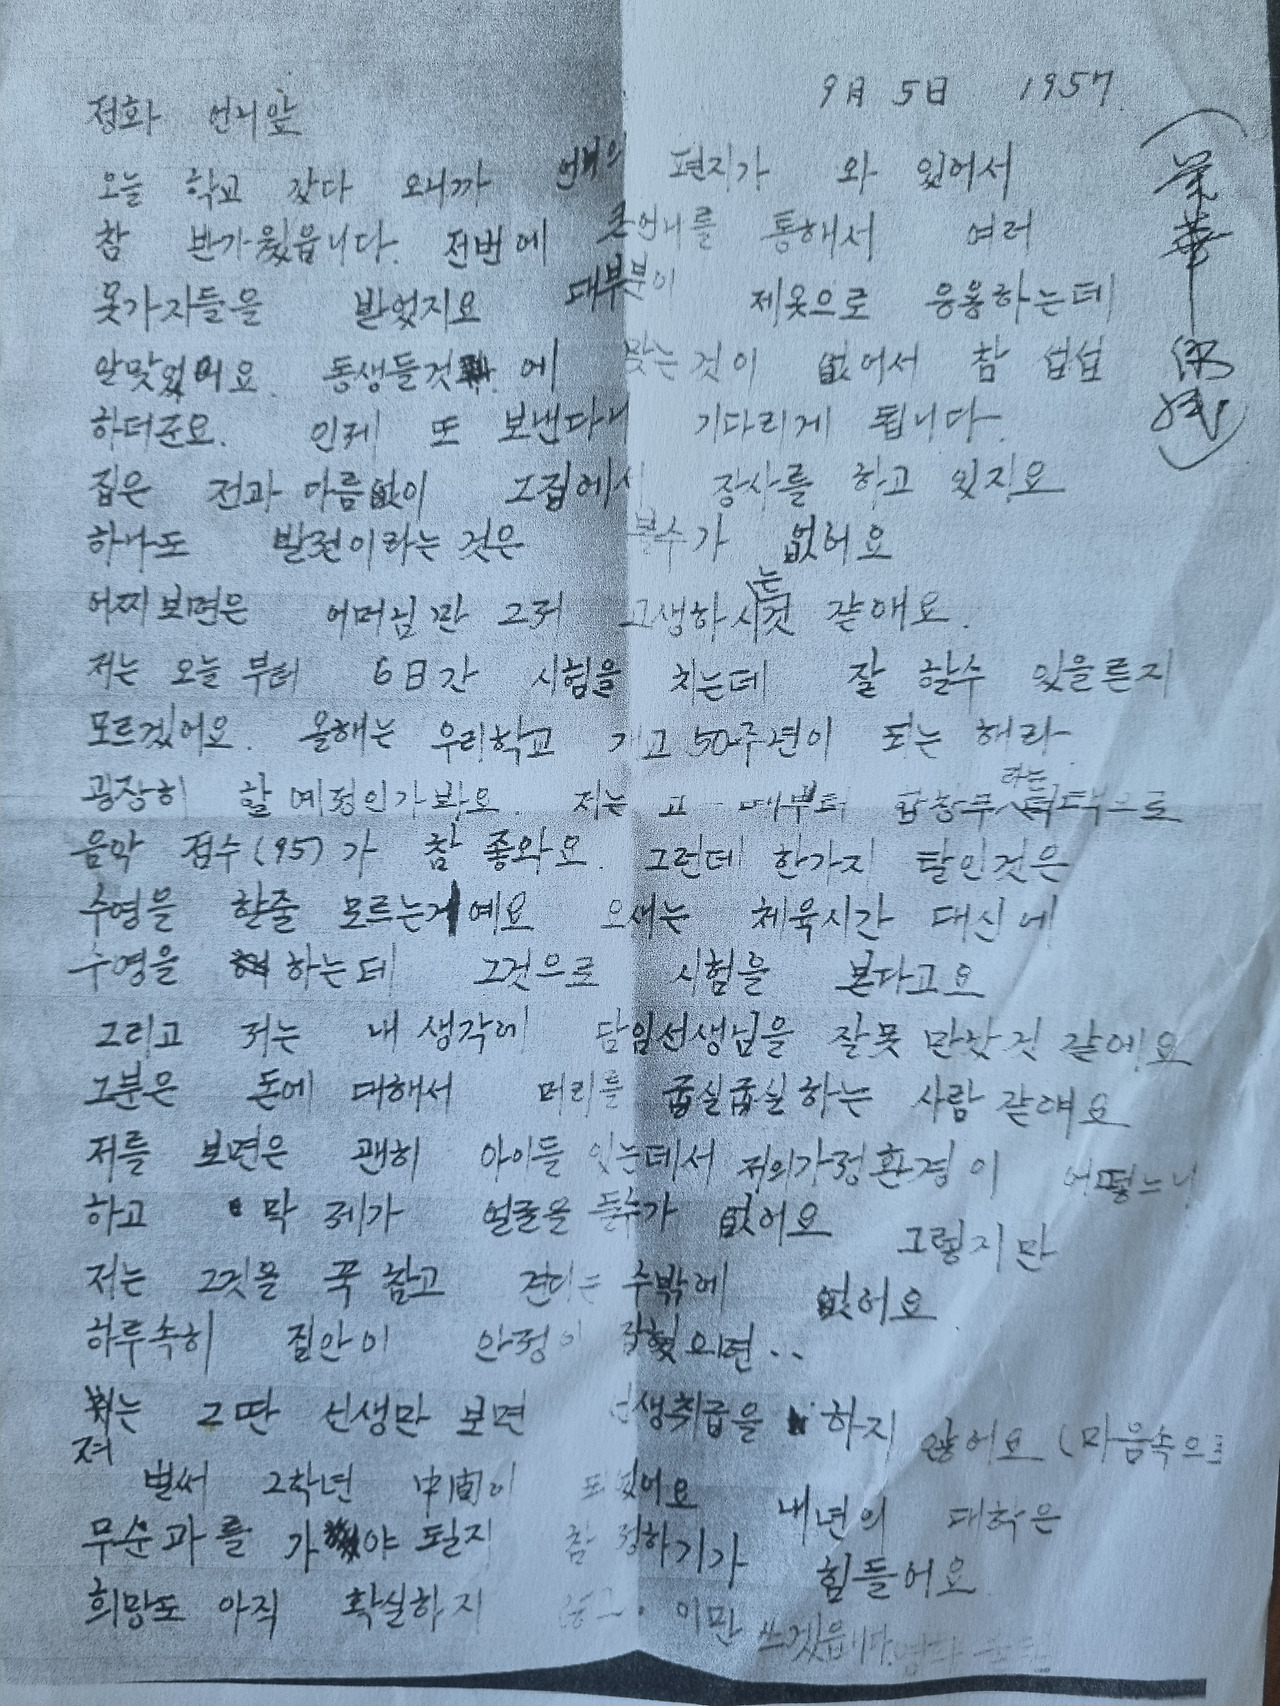 9月 5日 1957.
정화 언니앞
오늘 학교 갔다 오니까 언니의 편지가 와 있어서
참 반가웠읍니다. 전번에 큰언니를 통해서 여러
옷가지들을 받었지요 대부분이 제옷으로 응용하는데
알맞었어요. 동생들것에 맞는것이 없어서 참 섭섭
하더군요. 인제 또 보낸다니 기다리게 됩니다.
집은 전과 다름없이 그집에서 장사를 하고 있지요
하나도 발전이라는 것은 볼수가 없어요
어찌보면은 어머님만 그저 고생하시는것 같애요.
저는 오늘부터 6日간 시험을 치는데 잘 할수 있을른지
모르겠어요. 올해는 우리학교 개교 50주년이 되는 해라
굉장히 할 예정인가봐요. 저는 고 때부터 합창부라는 덕택으로
음악 점수(95)가 참 좋와요. 그런데 한가지 탈인것은
수영을 할줄 모르는게예요 요새는 체육시간 대신에
수영을 하는데 그것으로 시험을 본다고요
그리고 저는 내 생각에 담임선생님을 잘못 만났것 같에요
그분은 돈에 대해서 머리를 굽실굽실하는 사람 같애요
저를 보면은 괜히 아이들 있는데서 저의가정환경이 어떻느니
하고 막 제가 얼굴을 들수가 없어요 그렇지만
저는 그것을 꾹 참고 견디는 수밖에 없어요
하루속히 집안이 안정이 잡혔으면..
저는 그딴 선생만 보면 선생취급을 하지 않어요 (마음속으로
벌써 2학년 中間이 되었어요 내년의 대학은
무슨과를 가야 될지 참 정하기가 힘들어요
희망도 아직 확실하지 않고. 이만 쓰겠읍니다.